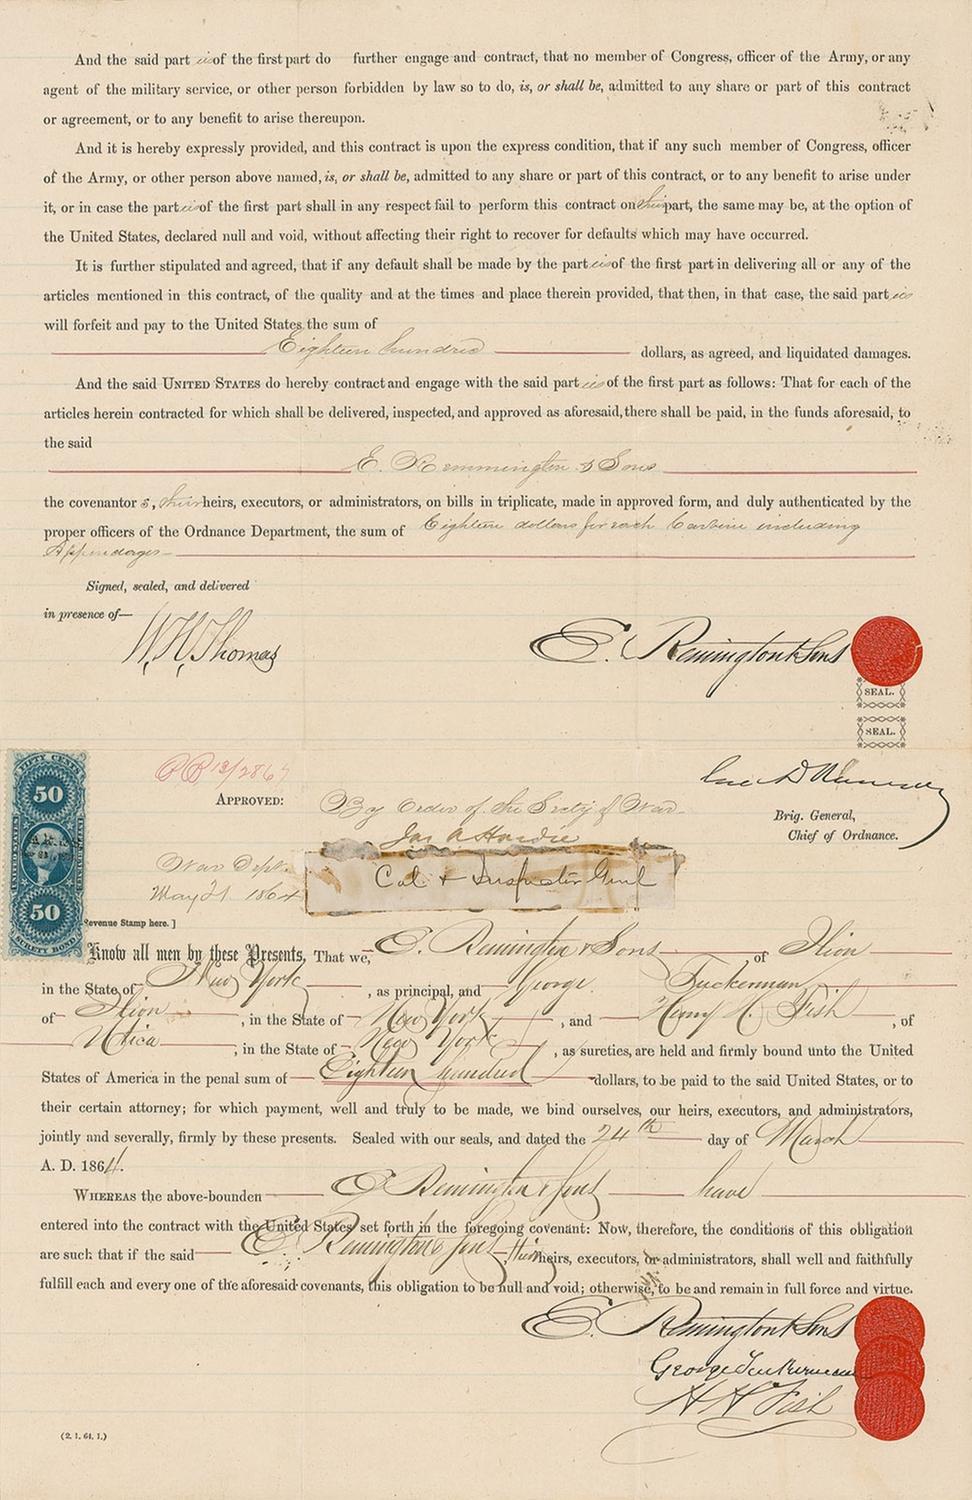 And the said part ies of the first part do further engage and contract, that no member of Congress, officer of the Army, or any
agent of the military service, or other person forbidden by law so to do, is, or shall be, admitted to any share or part of this contract
or agreement, or to any benefit to arise thereupon.
And it is hereby expressly provided, and this contract is upon the express condition, that if any such member of Congress, officer
of the Army, or other person above named, is, or shall be, admitted to any share or part of this contract, or to any benefit to arise under
it, or in case the part ies of the first part shall in any respect fail to perform this contract on their part, the same may be, at the option of
the United States, declared null and void, without affecting their right to recover for defaults which may have occurred.
It is further stipulated and agreed, that if any default shall be made by the part ies of the first part in delivering all or any of the
articles mentioned in this contract, of the quality and at the times and place therein provided, that then, in that case, the said part ies
will forfeit and pay to the United States the sum of
Eighteen hundred dollars, as agreed, and liquidated damages.
And the said United States do hereby contract and engage with the said part ies of the first part as follows: That for each of the
articles herein contracted for which shall be delivered, inspected, and approved as aforesaid, there shall be paid, in the funds aforesaid, to
the said
E. Remmington & Sons
the covenantor s, their heirs, executors, or administrators, on bills in triplicate, made in approved form, and duly authenticated by the
proper officers of the Ordnance Department, the sum of Eighteen dollars for each Carbine including
Appendages
Signed, sealed, and delivered
in presence of—
W. H. Thomas
E. Remington & Sons
SEAL.
SEAL.
FIFTY CENTS
50
50
SURETY BOND
Approved:
By Order of the Secty of War
Jas A Hardie
Col & Inspector Genl
War Dept.
May 21 1864
Brig. General,
Chief of Ordnance.
Revenue Stamp here. ]
Know all men by these Presents, That we, E. Remington & Sons of Ilion
in the State of New York, as principal, and George Tuckerman
of Ilion, in the State of New York, and Henry H. Fish, of
Utica, in the State of New York, as sureties, are held and firmly bound unto the United
States of America in the penal sum of Eighteen hundred dollars, to be paid to the said United States, or to
their certain attorney; for which payment, well and truly to be made, we bind ourselves, our heirs, executors, and administrators,
jointly and severally, firmly by these presents. Sealed with our seals, and dated the 24th day of March
A. D. 1864.
Whereas the above-bounden E Remington & Sons have
entered into the contract with the United States set forth in the foregoing covenant: Now, therefore, the conditions of this obligation
are such that if the said E. Remington & Sons, their heirs, executors, or administrators, shall well and faithfully
fulfill each and every one of the aforesaid covenants, this obligation to be null and void; otherwise, to be and remain in full force and virtue.
E. Remington & Sons
George Tuckerman
H H Fish
(2. 1. 64. 1.)